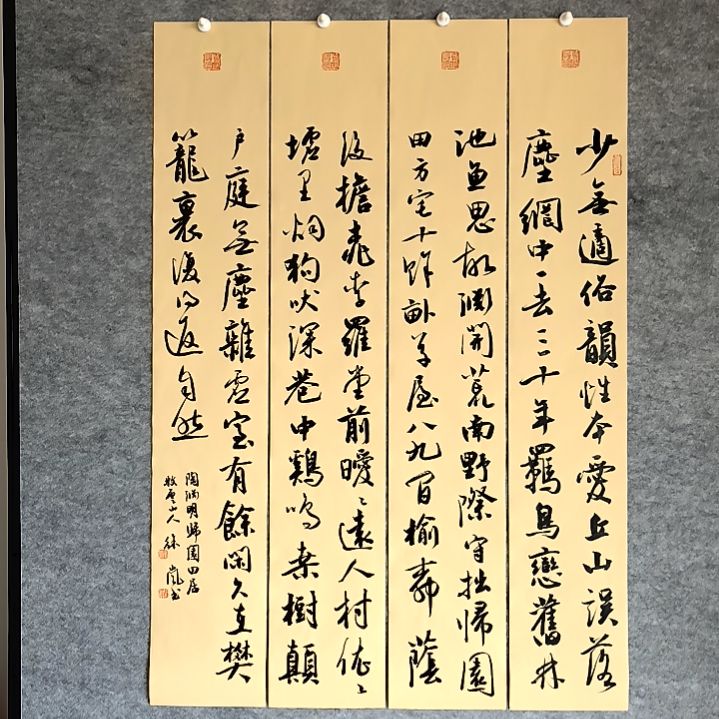 少無適俗韻性本愛丘山誤落
塵網中一去三十年羈鳥戀舊林
池魚思故淵開荒南野際守拙歸園
田方宅十餘畝草屋八九間榆柳蔭
後檐桃李羅堂前曖〻遠人村依〻
墟里烟狗吠深巷中鷄鳴桑樹顛
戶庭無塵雜虛室有餘閑久在樊
籠裏復得返自然
陶淵明歸園田居
牧雲山人徐嵐書